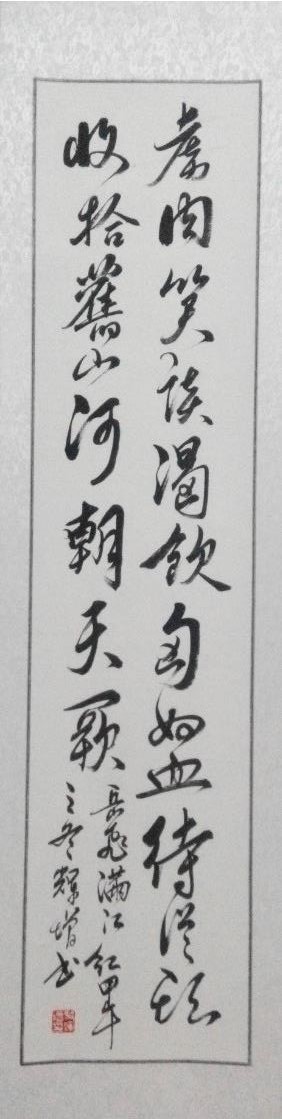 虜肉笑談渴飲匈奴血待從頭
收拾舊山河朝天闕
岳飛滿江紅甲午
之冬增书